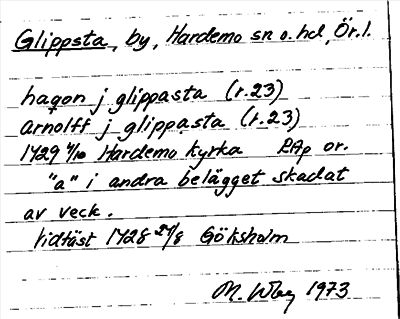 Glippsta, by, Hardemo sn o. hd, Ör.l.
hagon j glippasta (r.23)
arnolff j glippasta (r.23)
1429 4/10 Hardemo kyrka RAp or.
"a" i andra belägget skadat
av veck.
Vidfäst 1428 24/8 Göksholm
M. Wbg 1973